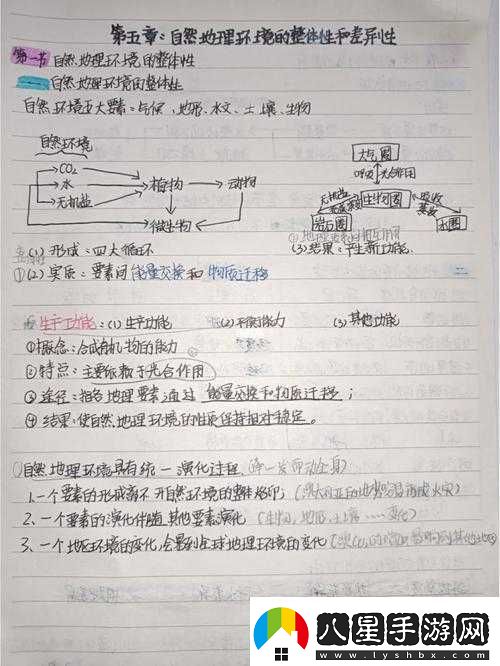 第五章：自然地理环境的整体性和差异性
第一节 自然地理环境的整体性
一 自然地理环境的整体性
自然环境五大要素：气候、地形、水文、土壤、生物
自然环境
CO₂
水
无机盐
植物
动物
微生物
大气圈
呼吸 光合作用
生物圈
无机盐
岩石圈
吸收
蒸发
水圈
(1) 形成：四大循环
(3) 结果：产生新功能
① (2) 实质：要素间能量交换和物质迁移
生产功能：(1) 生产功能 (2) 平衡能力 (3) 其他功能
① 概念：合成有机物的能力
② 特点：主要依赖于光合作用
③ 途径：相各地理要素通过能量交换和物质迁移；
④ 结果：使自然地理环境的性质保持相对稳定。
自然地理环境具有统一演化过程（牵一发而动全身）
1. 一个要素的形成离不开自然环境的整体烙印；
2. 一个要素的演化伴随其他要素演化（生物、地形、土壤……变化）
3. 一个地区环境的变化，会影响到全球地理环境的变化
八星手游网
www.lyshbx.com